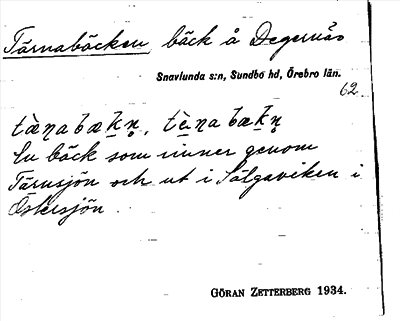 Tärnabäcken, bäck å Degernäs
Snavlunda s:n, Sundbo hd, Örebro län.
62.
tæ̀ꞃabækn̥, tæ̀ꞃabækn̥
En bäck som rinner genom
Tärnsjön och ut i Sälgaviken i
Östersjön.
GÖRAN ZETTERBERG 1934.